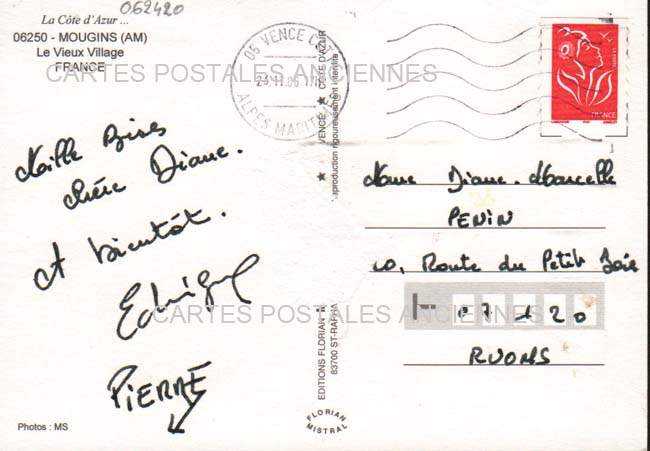 062420
La Côte d'Azur ...
06250 - MOUGINS (AM)
Le Vieux Village
FRANCE
CARTES POSTALES ANCIENNES
06 VENCE
23.11.06
ALPES MARIT
FRANCE
Mille Bises
chère Diane.
A bientôt.
Edwige
PIERRE
Photos : MS
★ VENCE ★ COTE D'AZUR
reproduction rigoureusement interdite
EDITIONS FLORIAN
83700 ST-RAPHA
FLORIAN
MISTRAL
Mme Diane Marcelle
PENIN
20, Route du Petit Bois
07120
RUOMS
CARTES POSTALES ANCIENNES